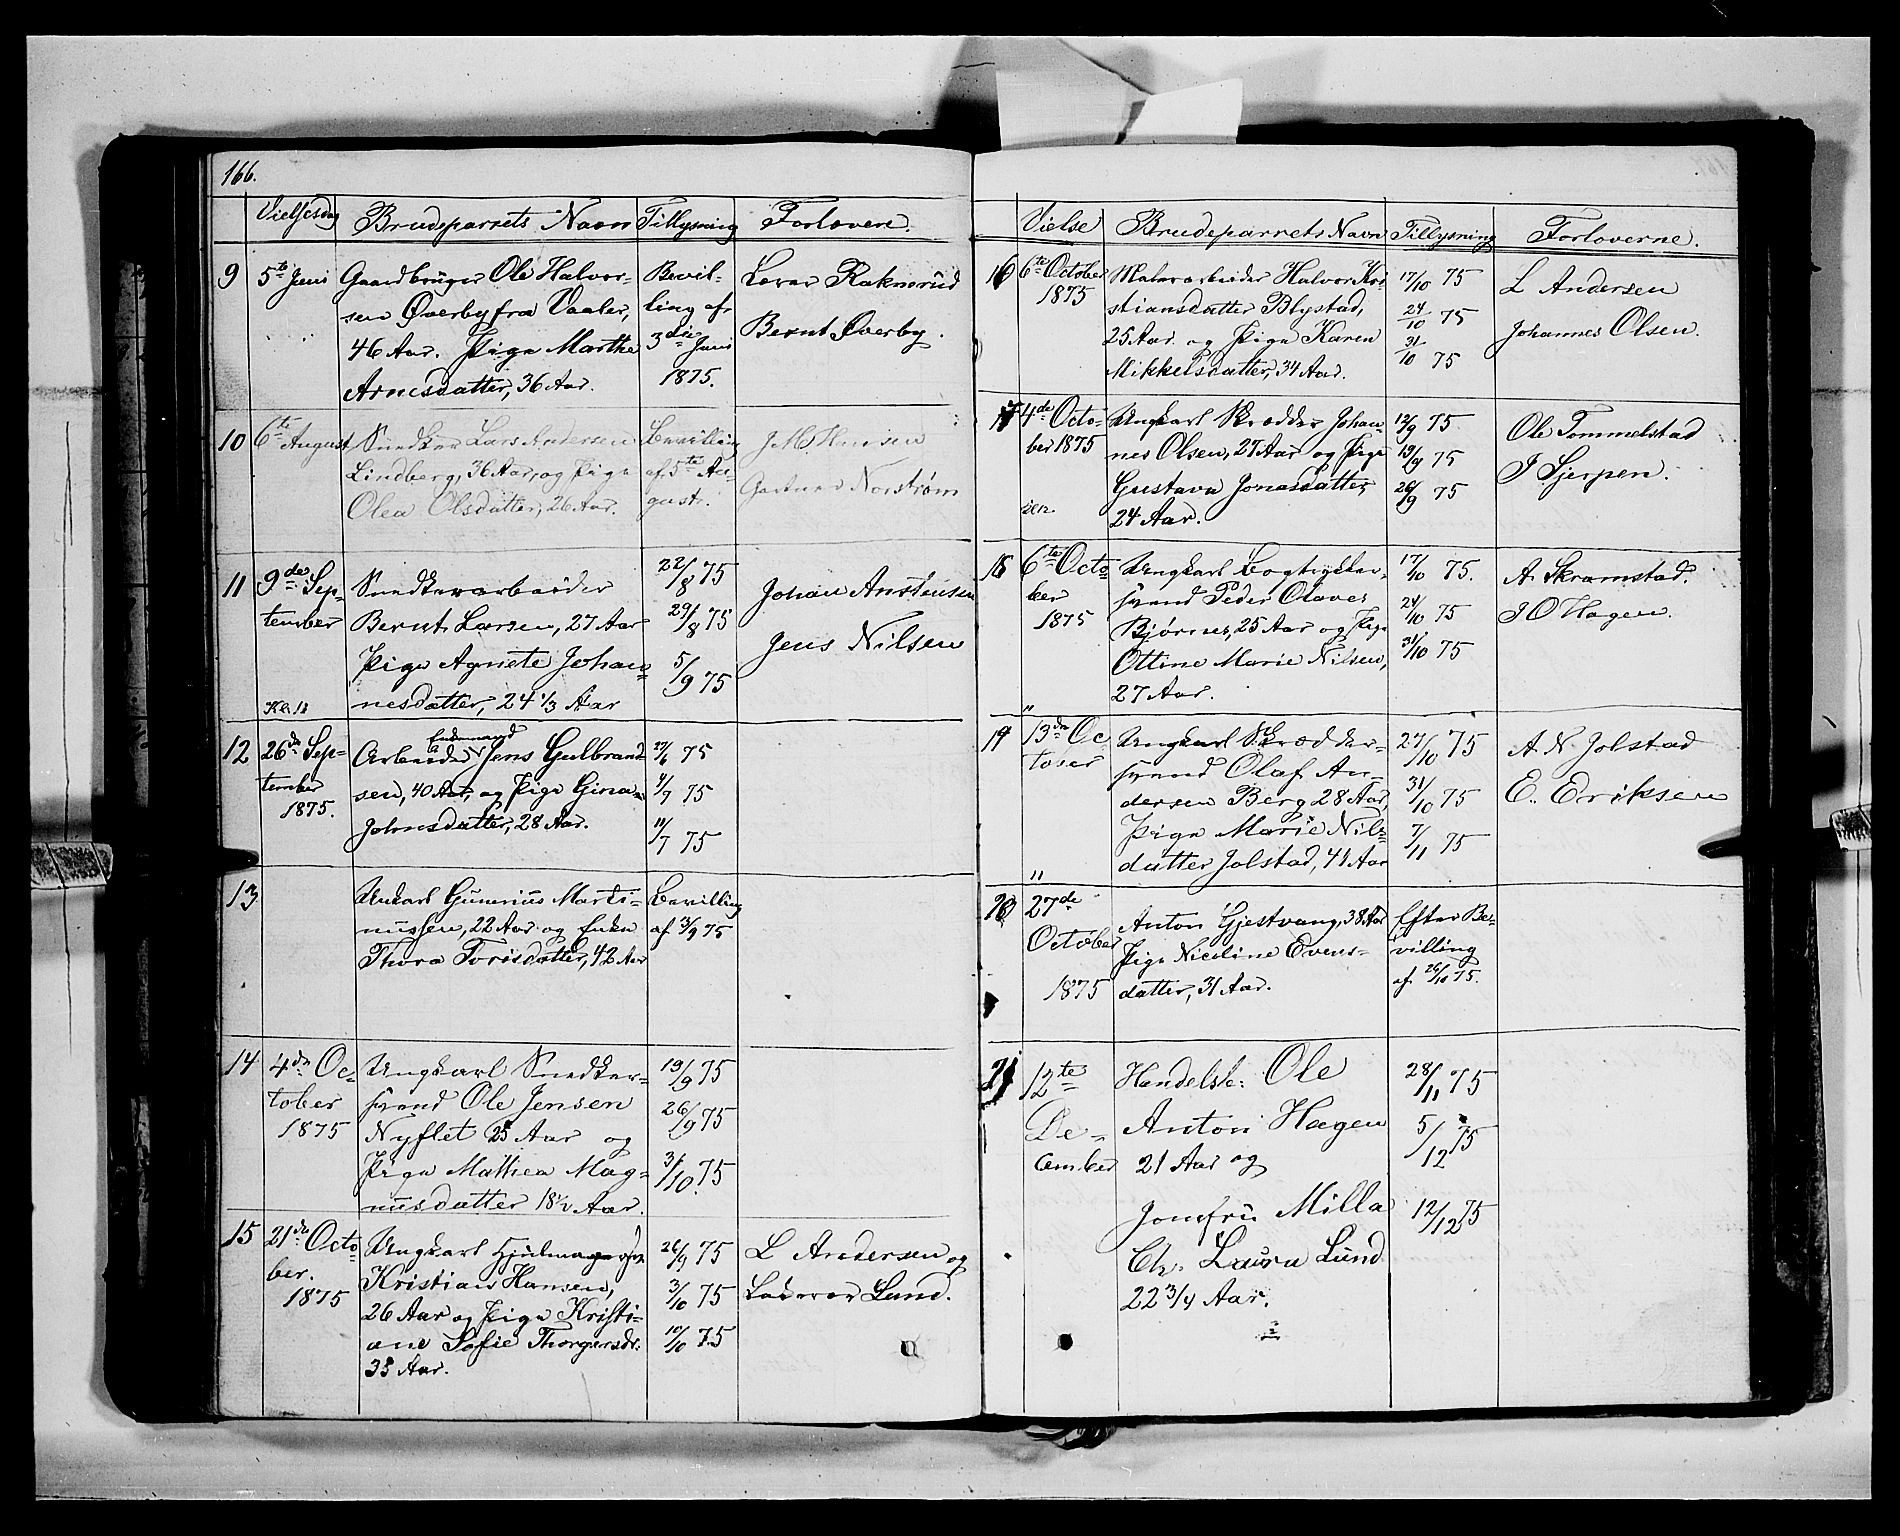 166.
Vielsesdag Brudeparrets Navn Tillysning Forlovere.
9 5te Juni Gaardbruger Ole Halvor-
sen Øverby fra Vaaler,
46 Aar. Pige Marthe
Arnesdatter, 36 Aar.
Bevil-
ling af
3die Juni
1875.
Lavar Raknerud
Bernt Øverby.
10 6te August Snedker Lars Andersen
Lindberg, 36 Aar, og Pige
Olea Olsdatter, 26 Aar.
Bevilling
af 5te Au-
gust.
J. M. Hansen
Gartner Norstrøm
11 9de Sep-
tember
Kl. 11
Snedkerarbeider
Bernt Larsen, 27 Aar
Pige Agnete Johan-
nesdatter, 24 1/3 Aar
22/8 75
29/8 75
5/9 75
Johan Anstensen
Jens Nilsen
12 26de Sep-
tember
1875.
Enkemand
Arbeider Jens Gulbrand-
sen, 40 Aar, og Pige Gina
Johnsdatter, 28 Aar.
27/6 75
4/7 75
11/7 75
13 Unkarl Gunerius Marti-
nussen, 22 Aar og Enke
Thora Torisdatter, 42 Aar
Bevilling
af 3/9 75
14 4de Oc-
tober
1875
Ungkarl Snedker-
svend Ole Jensen
Nyflet 25 Aar og
Pige Mathea Mag-
nusdatter 18 1/2 Aar.
19/9 75
26/9 75
3/10 75
15 21de Octo-
ber.
1875
Ungkarl Hjulmager
Kristian Hansen,
26 Aar og Pige Kristi-
ane Sofie Thorgersdr.
35 Aar.
26/9 75
3/10 75
10/10 75
L Andersen og
Laurer Lund.
Vielse Brudeparrets Navn Tillysning Forloverne.
16 6te October
1875
Malerarbeider Halvor Kri-
stiansdatter Blystad,
25 Aar og Pige Karen
Mikkelsdatter, 34 Aar.
17/10 75
24/10 75
31/10 75
L Andersen
Johannes Olsen.
17 4de Octo-
ber 1875
Ungkarl Skrædder Johan-
nes Olsen, 27 Aar og Pige
Gustava Jonasdatter,
24 Aar.
12/9 75
19/9 75
26/9 75
Ole Tommelstad
J Sjerpen.
18 6te Octo-
ber
1875
"
Ungkarl Bogtrykker-
svend Peder Olaves
Bjørnes, 25 Aar og Pige
Ottine Marie Nilsen,
27 Aar.
17/10 75.
24/10 75
31/10 75
A. Skramstad.
J O Hagen.
19 13de Oc
tober
"
Ungkarl Skrædder-
svend Olaf An-
dersen Berg 28 Aar,
Pige Marie Nils-
datter Jolstad, 41 Aar
27/10 75
31/10 75
7/11 75
A. N. Jolstad
E. Eriksen
20 27de
October
1875
Anton Gjestvang, 38 Aar
Pige Nicoline Evens-
datter, 31 Aar.
Efter Be-
villing
af 26/10 75.
21 12te
De-
cember
Handelsb: Ole
Anton Hagen
21 Aar og
Jomfru Milla
Ch. Laura Lund
22 3/4 Aar.
28/11 75
5/12 75
12/12 75